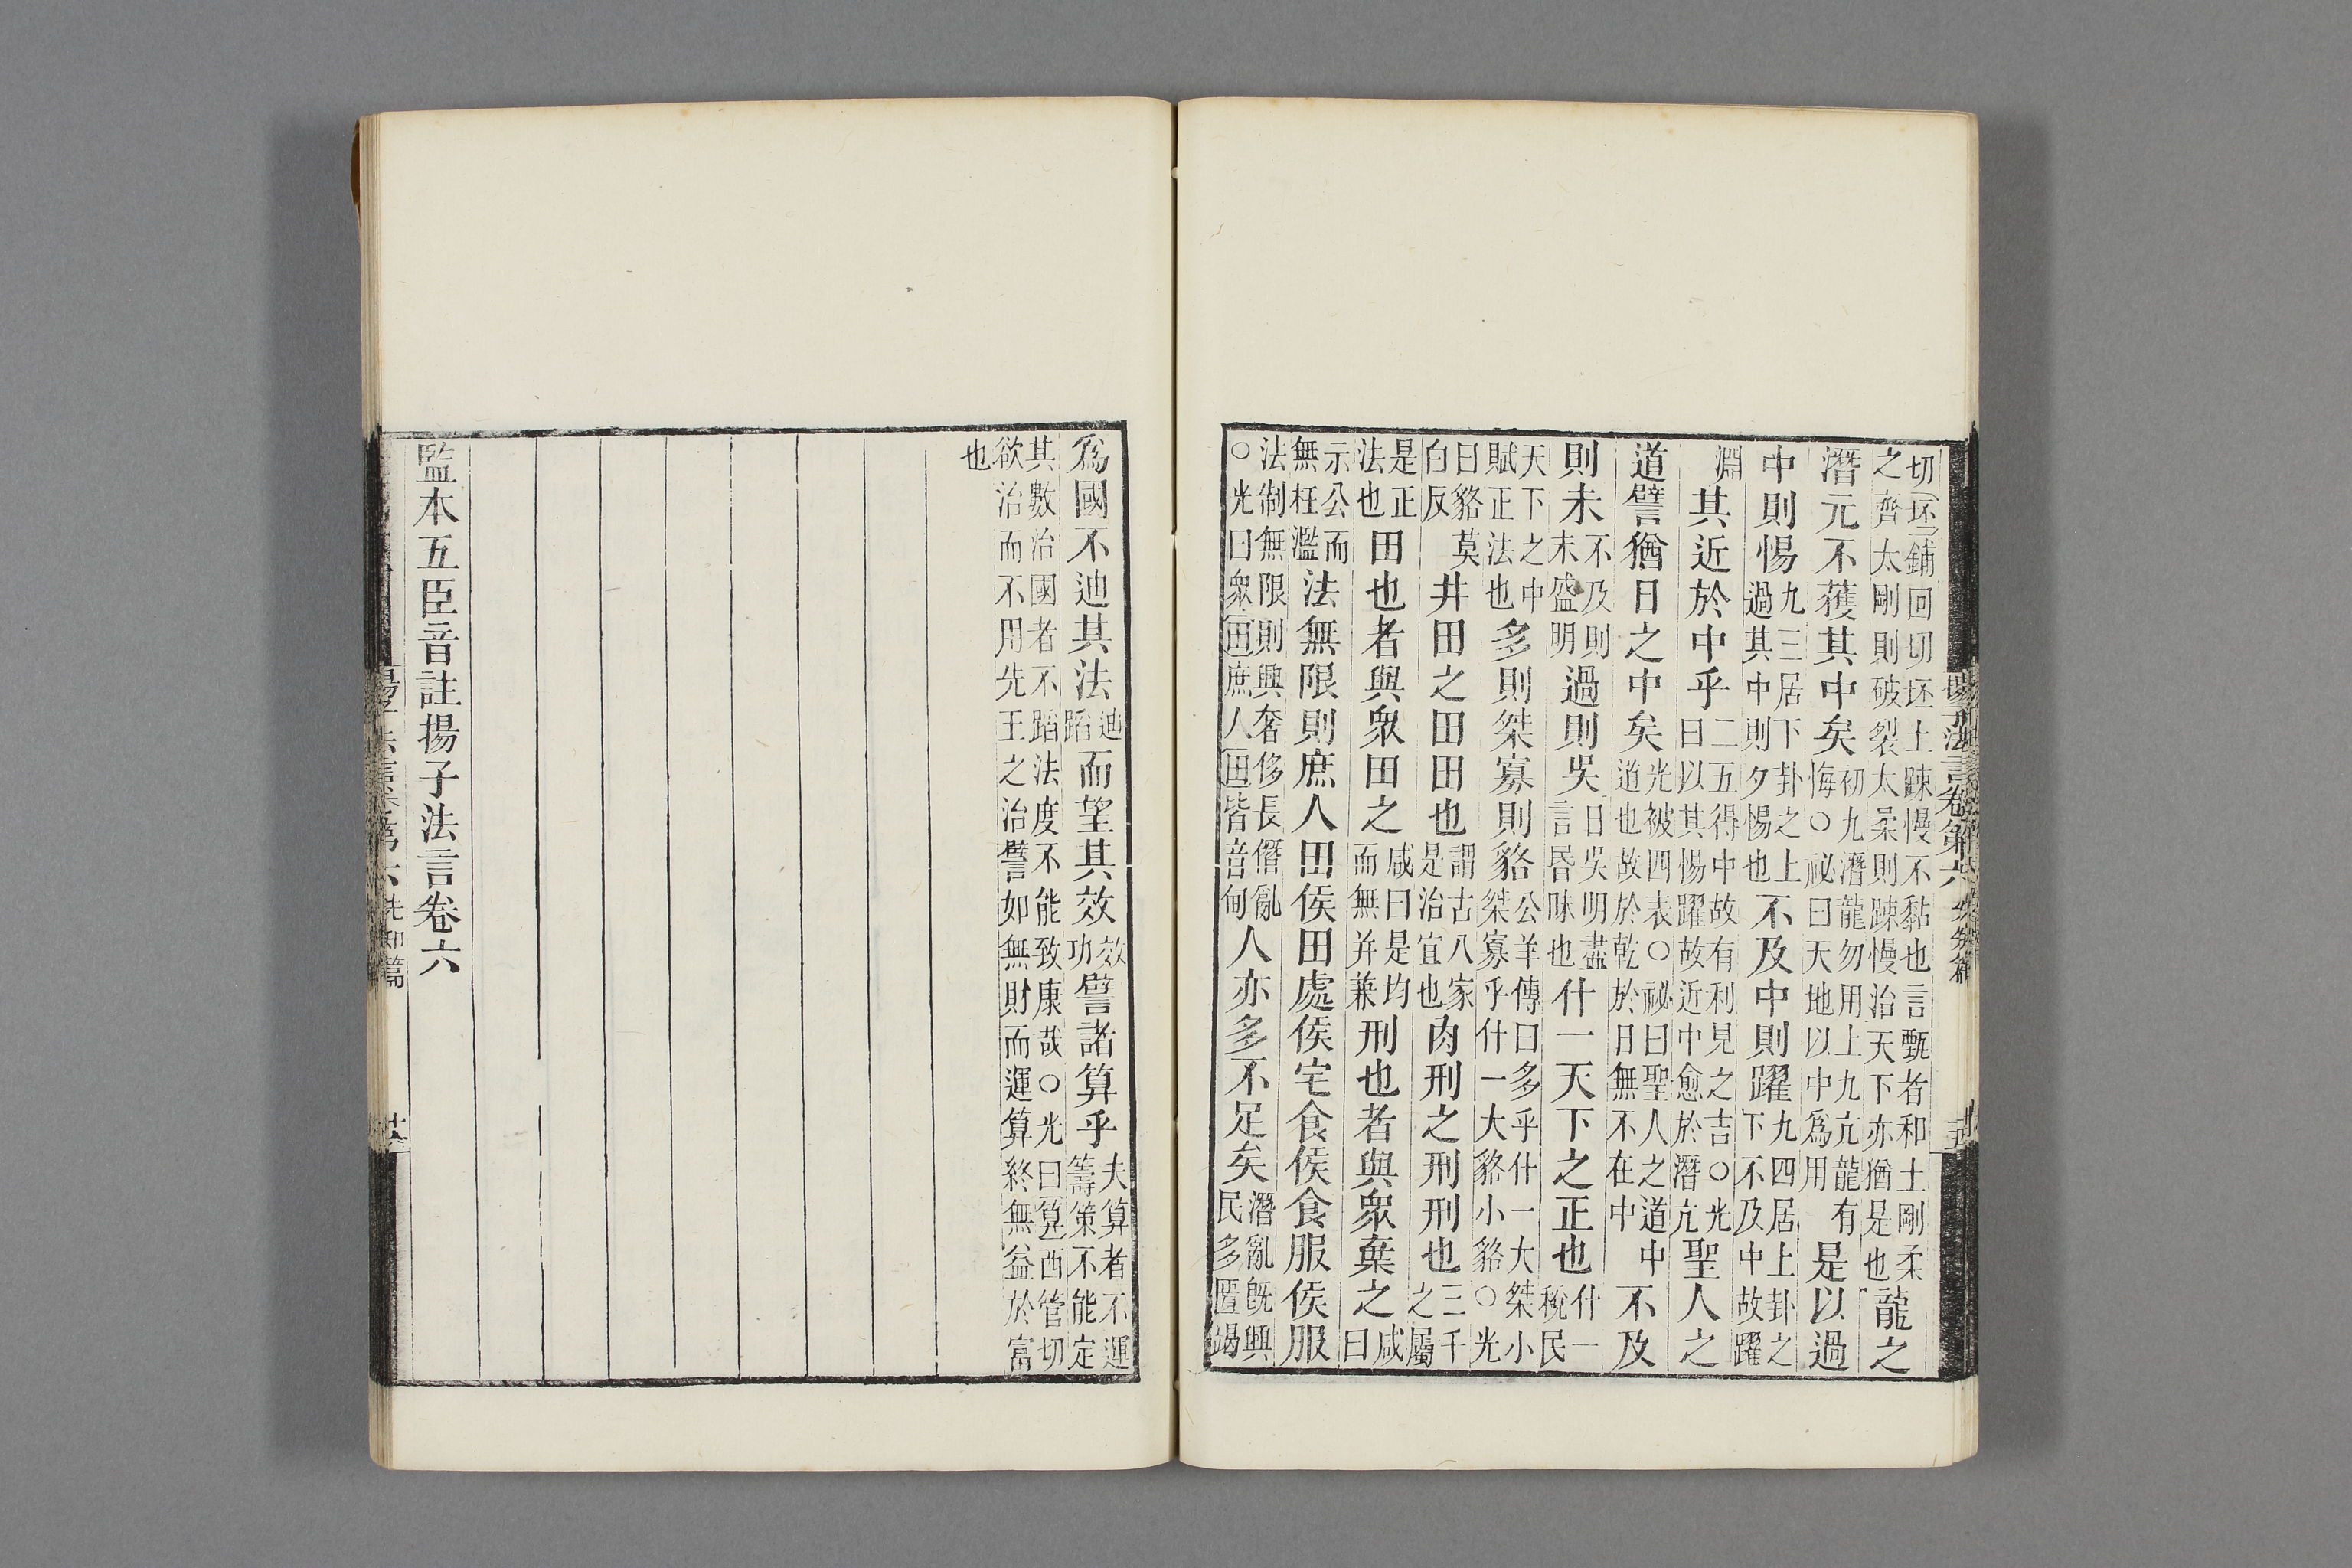 切坯鋪回切坯土踈慢不黏也言甄者和土剛柔之齊太剛則破裂太柔則踈慢治天下亦猶是也龍之
潛元不獲其中矣初九潛龍勿用上九亢龍有悔○祕曰天地以中爲用是以過
中則惕九三居下卦之上過其中則夕惕也不及中則躍九四居上卦之下不及中故躍
淵其近於中乎二五得中故有利見之吉○光曰以其惕躍故近中愈於潛亢聖人之
道譬猶日之中矣光被四表○祕曰聖人之道中道也故於乾於日無不在中不及
則未不及則未盛明過則吳日吳明盡言昬昧也什一天下之正也什一稅民
天下之中賦正法也多則桀寡則貉公羊傳曰多乎什一大桀小桀寡乎什一大貉小貉○光
曰貉莫白反井田之田田也謂古八家是治宜也肉刑之刑刑也三千之屬
是正法也田也者與衆田之咸曰是均而無并兼刑也者與衆棄之咸曰
示公而無枉濫法無限則庶人田侯田處侯宅食侯食服侯服
法制無限則興奢侈長僭亂○光曰衆田庶人田皆音甸人亦多不足矣潛亂旣興民多匱竭
爲國不迪其法迪蹈而望其效效功譬諸算乎夫算者不運籌策不能定
其數治國者不蹈法度不能致康哉○光曰算西管切欲治而不用先王之治譬如無財而運算終無益於富
也
監本五臣音註揚子法言卷六